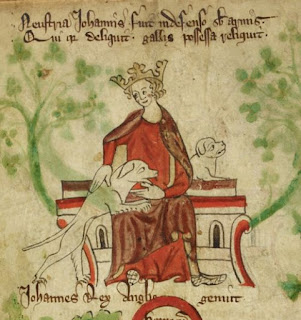 Neustria Johannis fuit indefenso sb armis
Qui qr deliquit. gallis possessa reliquit.
Johannes Rex Anglie genuit